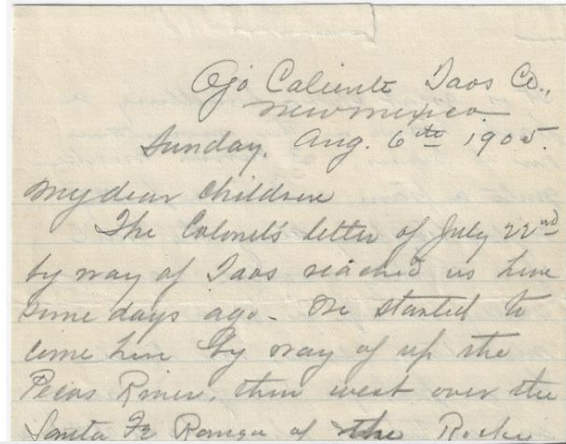 Ojo Caliente Taos Co.,
New Mexico
Sunday. Aug. 6th 1905.
My dear Children
The Colonel's letter of July 22nd
by way of Taos reached us here
some days ago - We started to
come here by way of up the
Pecos River, then west over the
Santa Fe Range of the Rocky